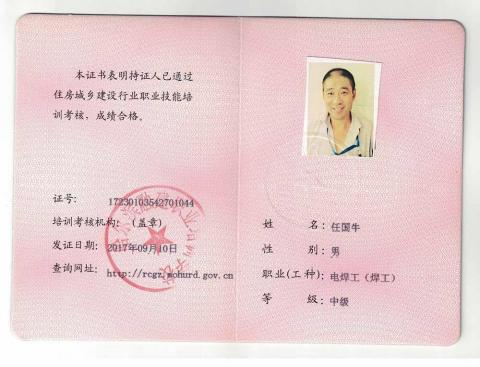 本证书表明持证人已通过
住房城乡建设行业职业技能培
训考核，成绩合格。
证号： 17230103542701044
培训考核机构：（盖章）
发证日期： 2017年09月10日
查询网址： http://rcgz.mohurd.gov.cn
姓 名：任国牛
性 别：男
职业(工种)：电焊工（焊工）
等 级：中级